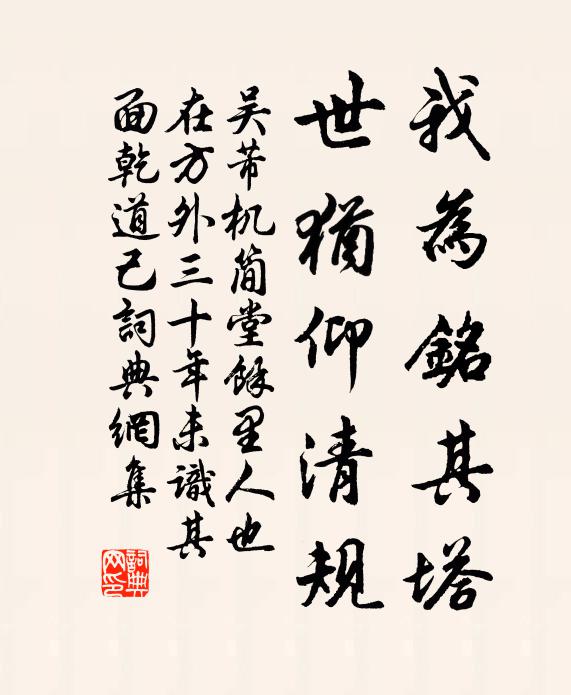 我為銘其塔
世猶仰清規
吴芾机简堂餘里人也
在方外三十年未識其
面乾道己詞典網集